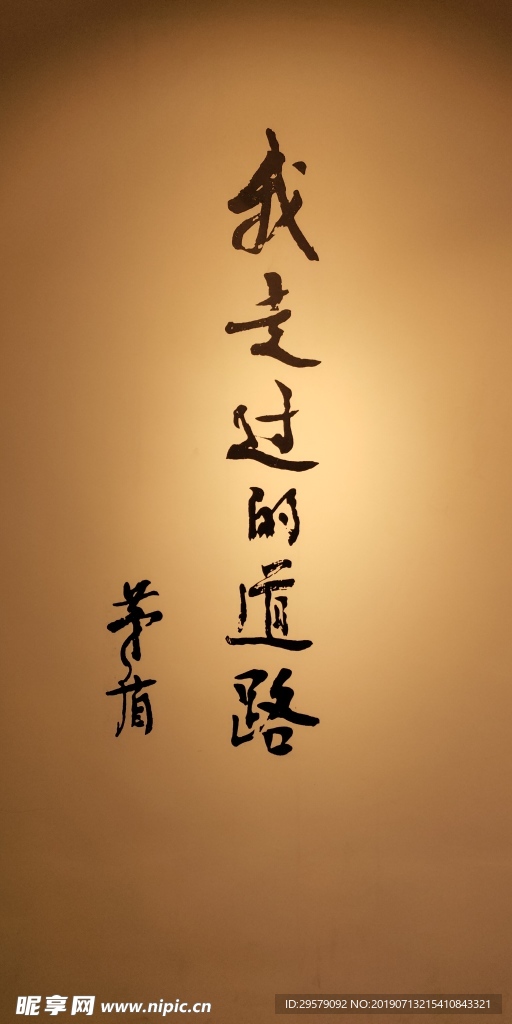 我走过的道路
茅盾
昵享网 www.nipic.cn
ID:29579092 NO:20190713215410843321